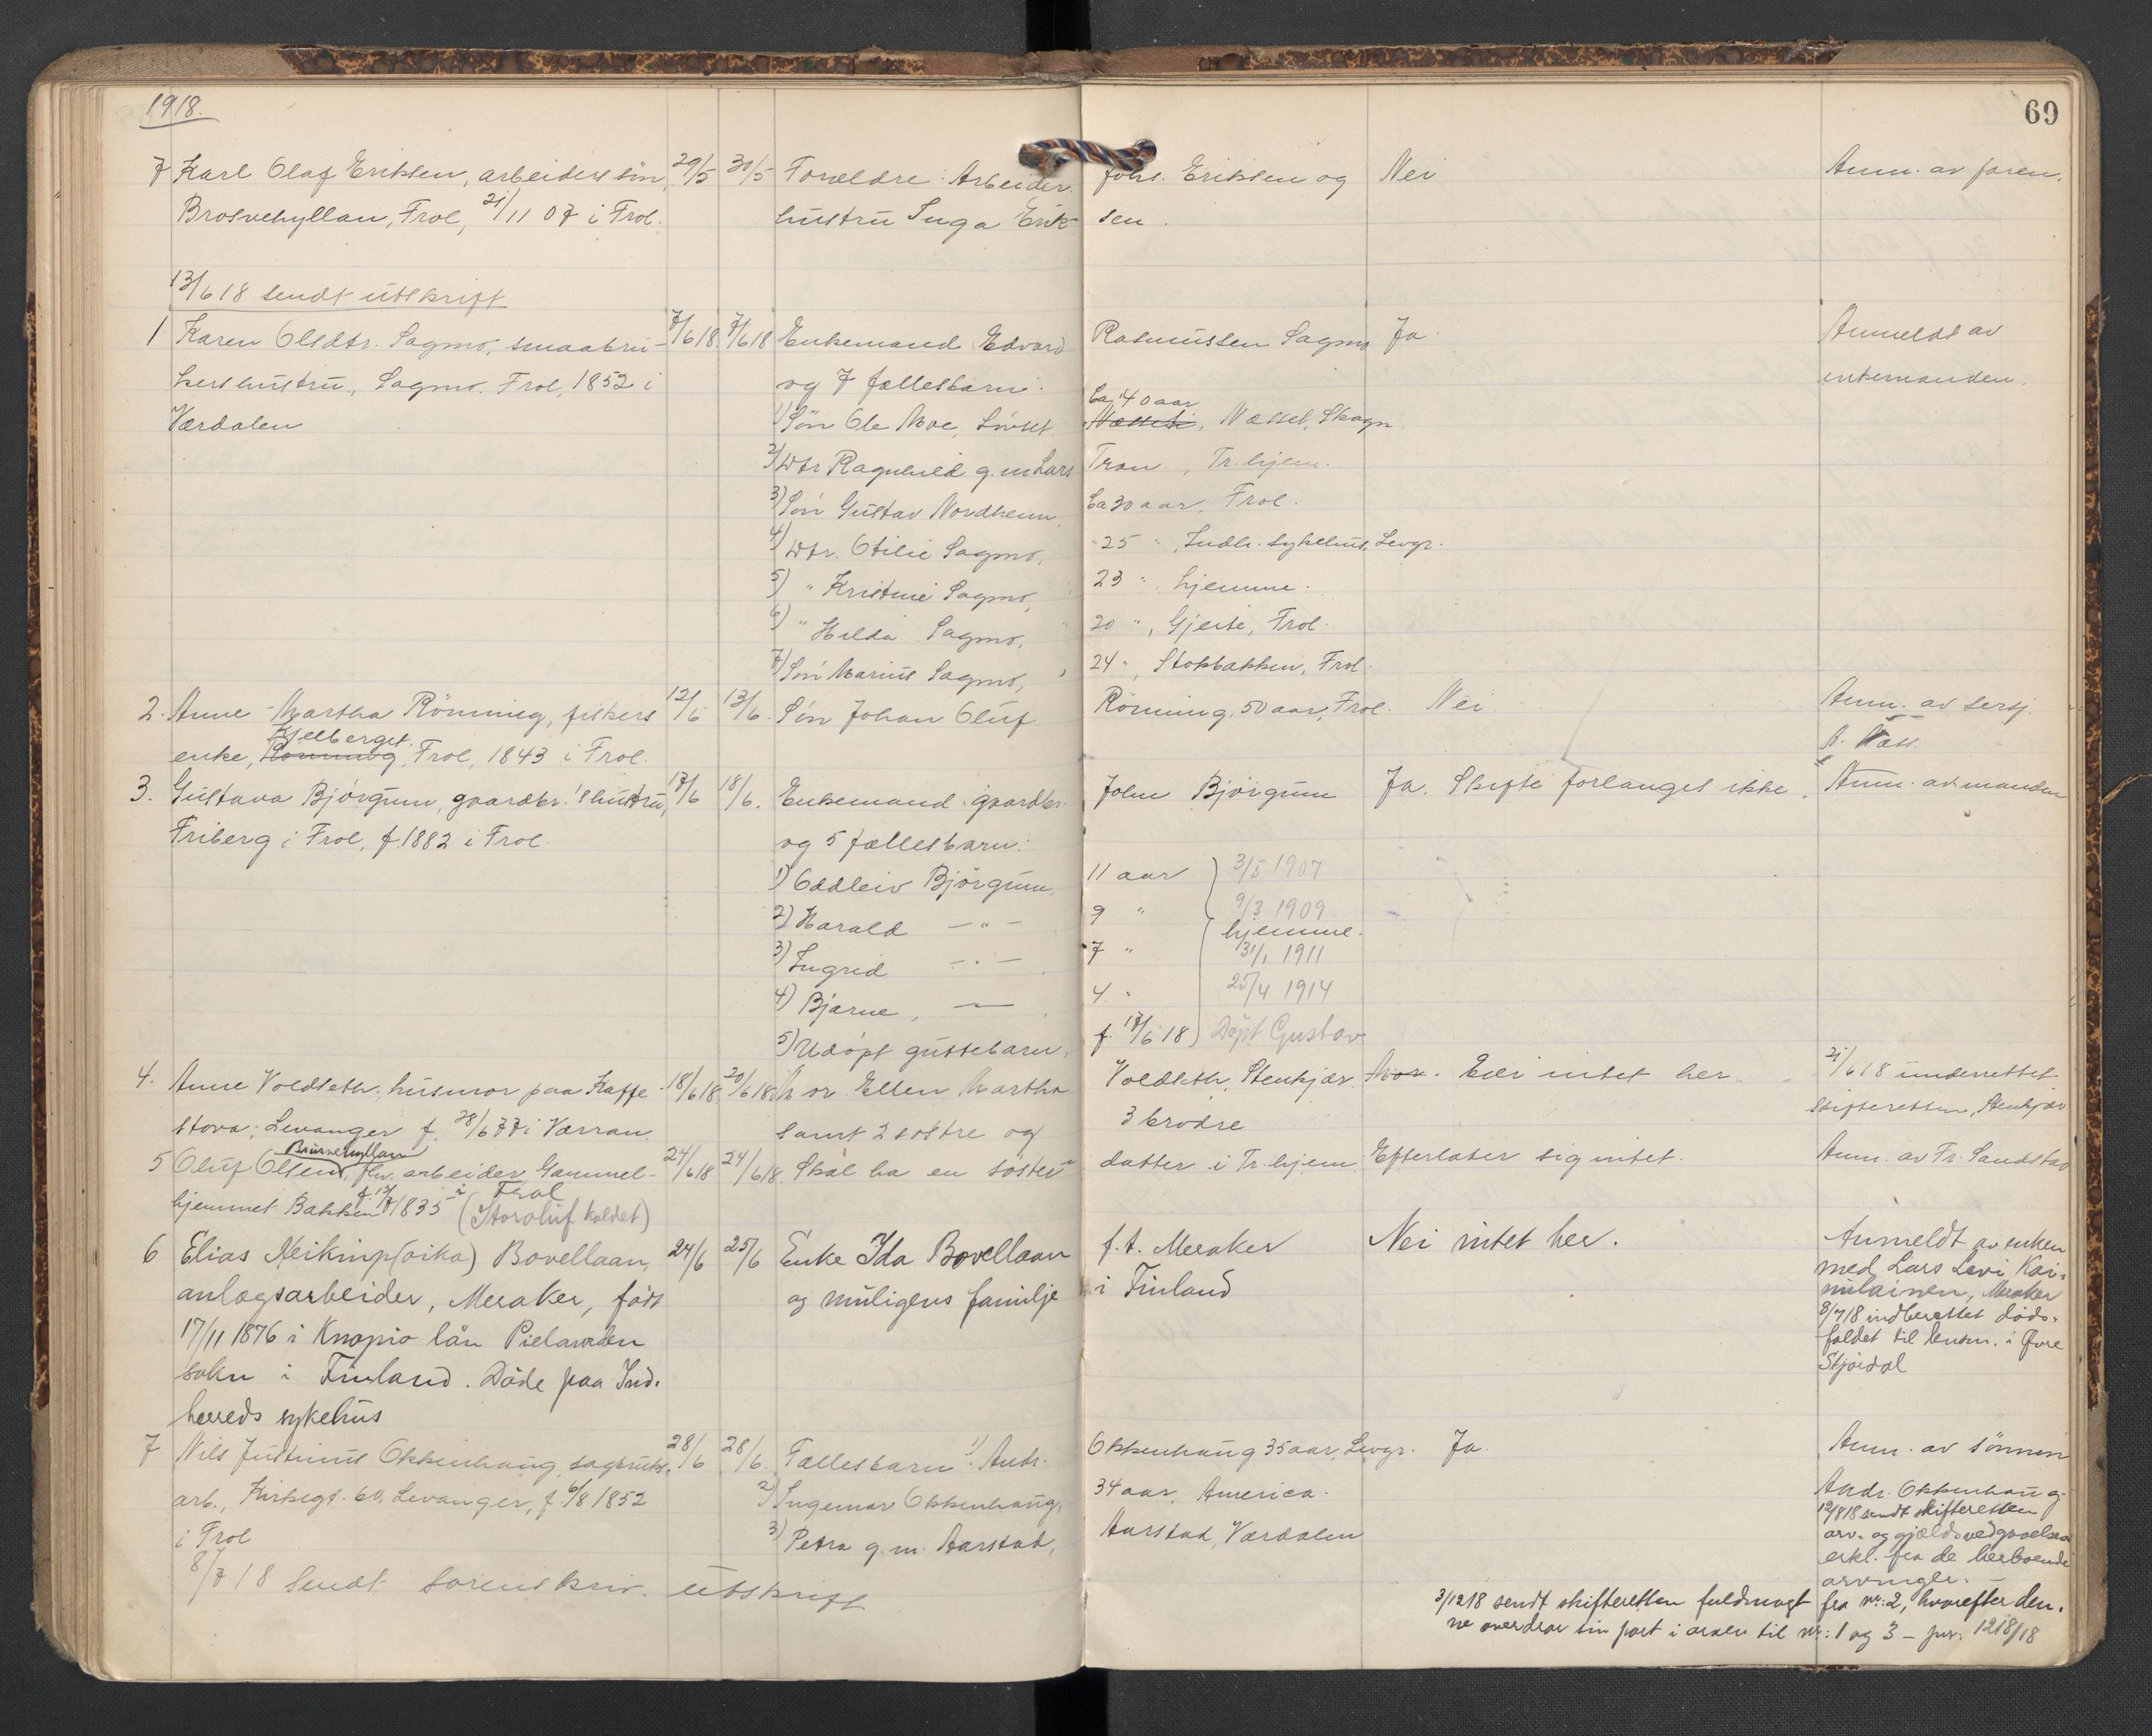 1918.
69
7 Karl Olaf Eriksen, arbeiders sön, 29/5 30/5 Forældre: Arbeider Johs. Eriksen og Nei Anm. av faren.
Brosvehyllan, Frol, 21/11 07 i Frol. hustru Inga Erik- sen.
13/6 18 sendt utskrift
1 Karen Olsdtr. Sagmo, smaabru- 7/6 18. 7/6 18 Enkemand Edvard Rasmussen Sagmo Ja. Anmeldt av
kers hustru, Sagmo. Frol, 1852 i og 7 fællesbarn: enkemanden.
Værdalen 1) Sön Ole Moe, Lövset Ca. 40 aar Næsset, Skogn.
2) Dtr Ragnhild g.m. Lars Tran, Tr.hjem.
3) Sön Gustav Nordheim, Ca 30 aar, Frol.
4) Dtr. Otilie Sagmo, " 25 ", Indh. sykehus, Levgr.
5) " Kristine Sagmo, 23 ", hjemme.
6) " Hilda Sagmo, 20 ", Gjeite, Frol.
7) Sön Marius Sagmo, 24 ", Stokbakken, Frol.
2. Anne Martha Rönning, fiskers 12/6 13/6. Sön Johan Oluf Rönning, 50 aar, Frol. Nei Anm. av sersj.
Kjelberget.
enke, Rönning, Frol, 1843 i Frol.
3. Gustava Björgum, gaardbr.'s hustru, 17/6 18/6. Enkemand gaardbr. John Björgum Ja. Skifte forlanges ikke. Anm. av manden
Friberg i Frol, f. 1882 i Frol. og 5 fællesbarn:
1) Oddleiv Björgum, 11 aar 3/5 1907
2) Harald — " — 9 " 9/3 1909
hjemme.
3) Ingrid — " — 7 " 31/1 1911
4) Bjarne, — 4 " 25/4 1914
5) Udöpt guttebarn, f. 17/6 18 Döpt Gustav
4. Anne Voldseth, husmor paa Kaffe- 18/6 18. 20/6 18. Mor Ellen Martha Voldseth, Stenkjær. Eier intet her. 21/6 18 underrettet
stova, Levanger f. 28/6 77 i Værran. samt 2 söstre og 3 brödre skifteretten, Stenkjær
Brusvehyllan
5 Oluf Olsen, fhv. arbeider Gammel- 24/6 18 24/6 18. Skal ha en söster datter i Tr.hjem. Efterlater sig intet. Anm. av Fr. Sandstad
hjemmet Bakken f. 1835 i Frol (Storoluf kaldet)
6 Elias Heikinp(oika) Bovellaan, 24/6 25/6 Enke Ida Bovellaan f.t. Meraker Nei intet her. Anmeldt av enken
anlægsarbeider, Meraker, född og muligens familje i Finland med Lars Levi Kai-
17/11 1876 i Knopio län nulainen, Meraker
sokn i Finland. Döde paa Ind- 8/7 18 indberettet döds-
herreds sykehus faldet til lensm. i Övre
Stjördal
7 Nils Justinus Okkenhaug, sagbruks- 28/6 28/6. Fællesbarn: 1) Andr. Okkenhaug 35 aar, Levgr. Ja. Anm. av sönnen
arb., Kirkegt. 60, Levanger, f. 6/8 1852 2) Ingemar Okkenhaug, 34 aar, America. Andr. Okkenhaug.
i Frol 3) Petra g.m. Aarstad, Aarstad, Værdalen 12/8 18 sendt skifteretten
arv- og gjældsvedgaaelses
erkl. fra de herboende
arvinger.
8/7 18 Sendt sorenskriv. utskrift
3/12 18 sendt skifteretten fuldmagt fra nr. 2, hvorefter den-
ne overdrar sin part i arven til nr. 1 og 3 – jnr. 1218/18